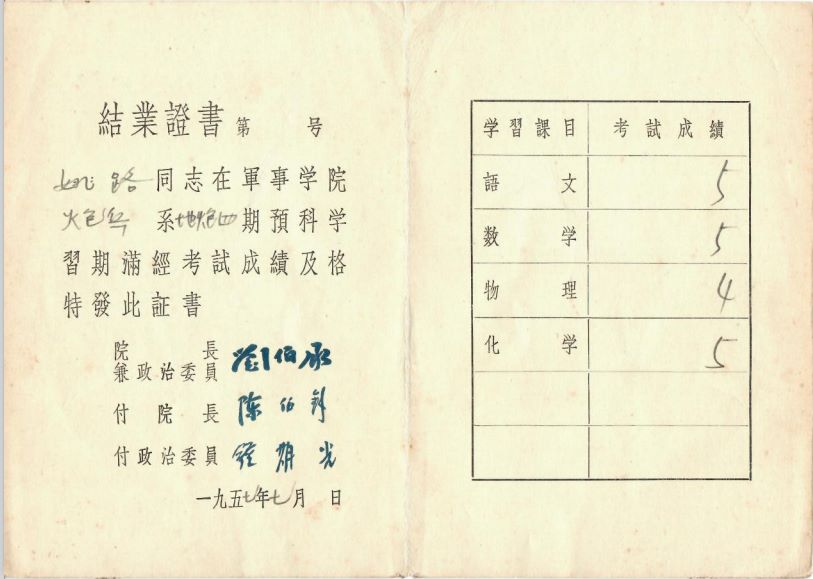 結業證書 第 号
姚路同志在軍事学院
火包兵 系地炮四期預科学
習期滿經考試成績及格
特發此証書
院長
兼政治委員 劉伯承
付院長 陈伯鈞
付政治委員 鍾期光
一九五七年七月 日
学習課目 考試成績
語文 5
数学 5
物理 4
化学 5